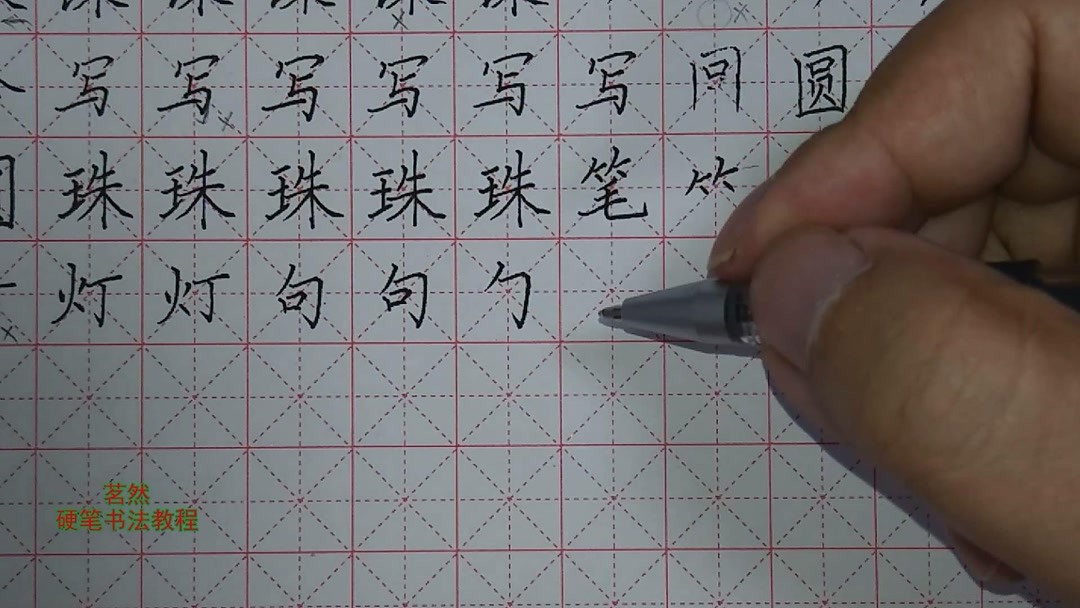 写 写 写 写 写 写 冋 圆
珠 珠 珠 珠 珠 笔 ⺮
灯 灯 句 句 勹
茗然
硬笔书法教程